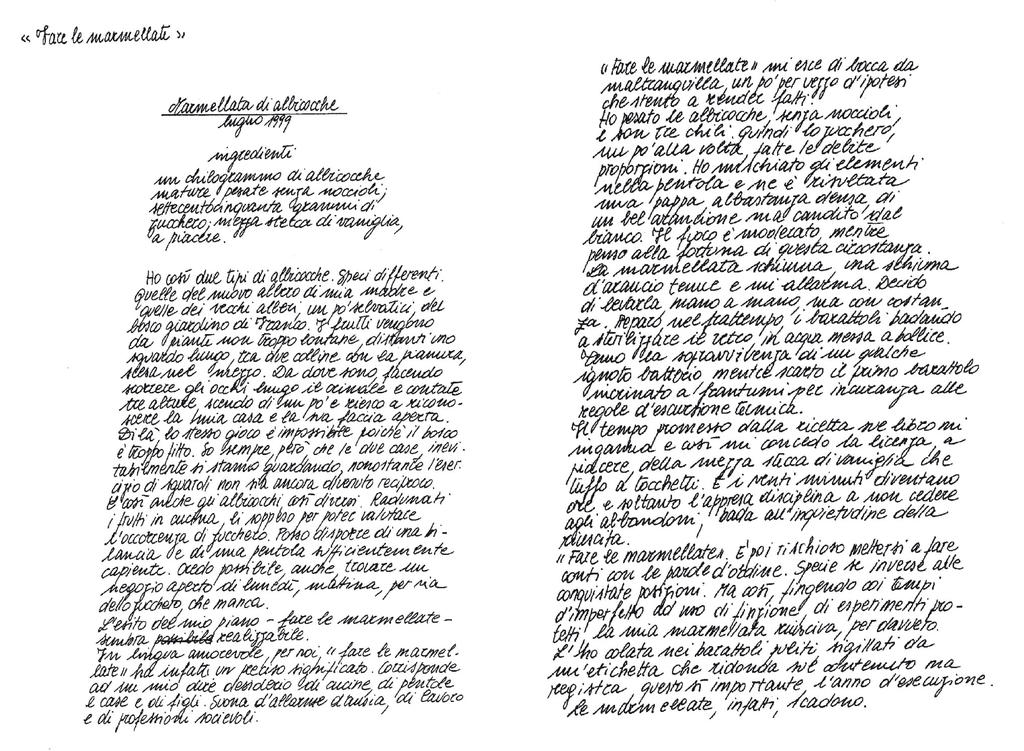 « Fare le marmellate »
Marmellata di albicocche
luglio 1999
ingredienti
un chilogrammo di albicocche
mature pesate senza noccioli;
settecentocinquanta grammi di
zucchero; mezza stecca di vaniglia,
a piacere.
Ho così due tipi di albicocche. Speci differenti.
Quelle del nuovo albero di mia madre e
quelle dei vecchi alberi, un po' selvatici, del
bosco giardino di Franco. I frutti vengono
da piante non troppo lontane, distanti uno
sguardo lungo, tra due colline con la pianura,
stesa nel mezzo. Da dove sono, facendo
scorrere gli occhi lungo il crinale e contate
tre alture, scendo di un po' e riesco a ricono-
scere la mia casa e la sua faccia aperta.
Di là lo stesso gioco è impossibile poiché il bosco
è troppo fitto. So sempre, però, che le due case, inevi-
tabilmente si stanno guardando, nonostante l'eser-
cizio di sguardi non sia ancora divenuto reciproco.
E così anche gli albicocchi, così diversi. Radunati
i frutti in cucina, li soppeso per poter valutare
l'occorrenza di zucchero. Posso disporre di una bi-
lancia e di una pentola sufficientemente
capiente. Credo possibile, anche, trovare un
negozio aperto di lunedì, mattina, per via
dello zucchero, che manca.
L'esito del mio piano - fare le marmellate -
sembra possibile realizzabile.
In lingua amorevole, per noi, "fare le marmel-
late" ha infatti un preciso significato. Corrisponde
ad un mio dire desiderio di cucine, di pentole
e case e di figli. Suona d'allarme d'ansia, di lavoro
e di professioni socievoli.
"Fare le marmellate" mi esce di bocca da
maltranquilla, un po' per vezzo d'ipotesi
che stento a render fatti.
Ho pesato le albicocche, senza noccioli,
e son tre chili. Quindi lo zucchero,
un po' alla volta, fatte le debite
proporzioni. Ho mischiato gli elementi
nella pentola e ne è risultata
una pappa, abbastanza densa, di
un bel arancione ma candito dal
bianco. Il fuoco è moderato, mentre
penso alla fortuna di questa circostanza.
La marmellata schiuma, una schiuma
d'arancio tenue e mi allarma. Decido
di levarla mano a mano, ma con costan-
za. Preparo, nel frattempo, i barattoli badando
a sterilizzare il vetro, in acqua messa a bollire.
Temo la sopravvivenza di un qualche
ignoto batterio mentre scarto il primo barattolo
rovinato a frantumi per incuranza alle
regole d'escursione termica.
Il tempo promesso dalla ricetta sul libro mi
inganna e così mi concedo la licenza, a
piacere, della mezza stecca di vaniglia che
tuffo a tocchetti. E i venti minuti diventano
ore, e soltanto l'appresa disciplina a non cedere
agli abbandoni, bada all'inquietudine della
riuscita.
"Fare le marmellate". È poi rischioso mettersi a fare
conti con le parole d'ordine. Specie se inverse alle
conquistate posizioni. Ma così, fingendo coi tempi
d'imperfetto ad uso di finzione, di esperimenti pro-
tetti la mia marmellata riusciva, per davvero.
L'ho colata nei barattoli puliti sigillati da
un'etichetta che ridonda sul contenuto ma
registra, questo sì importante, l'anno d'esecuzione.
Le marmellate, infatti, scadono.